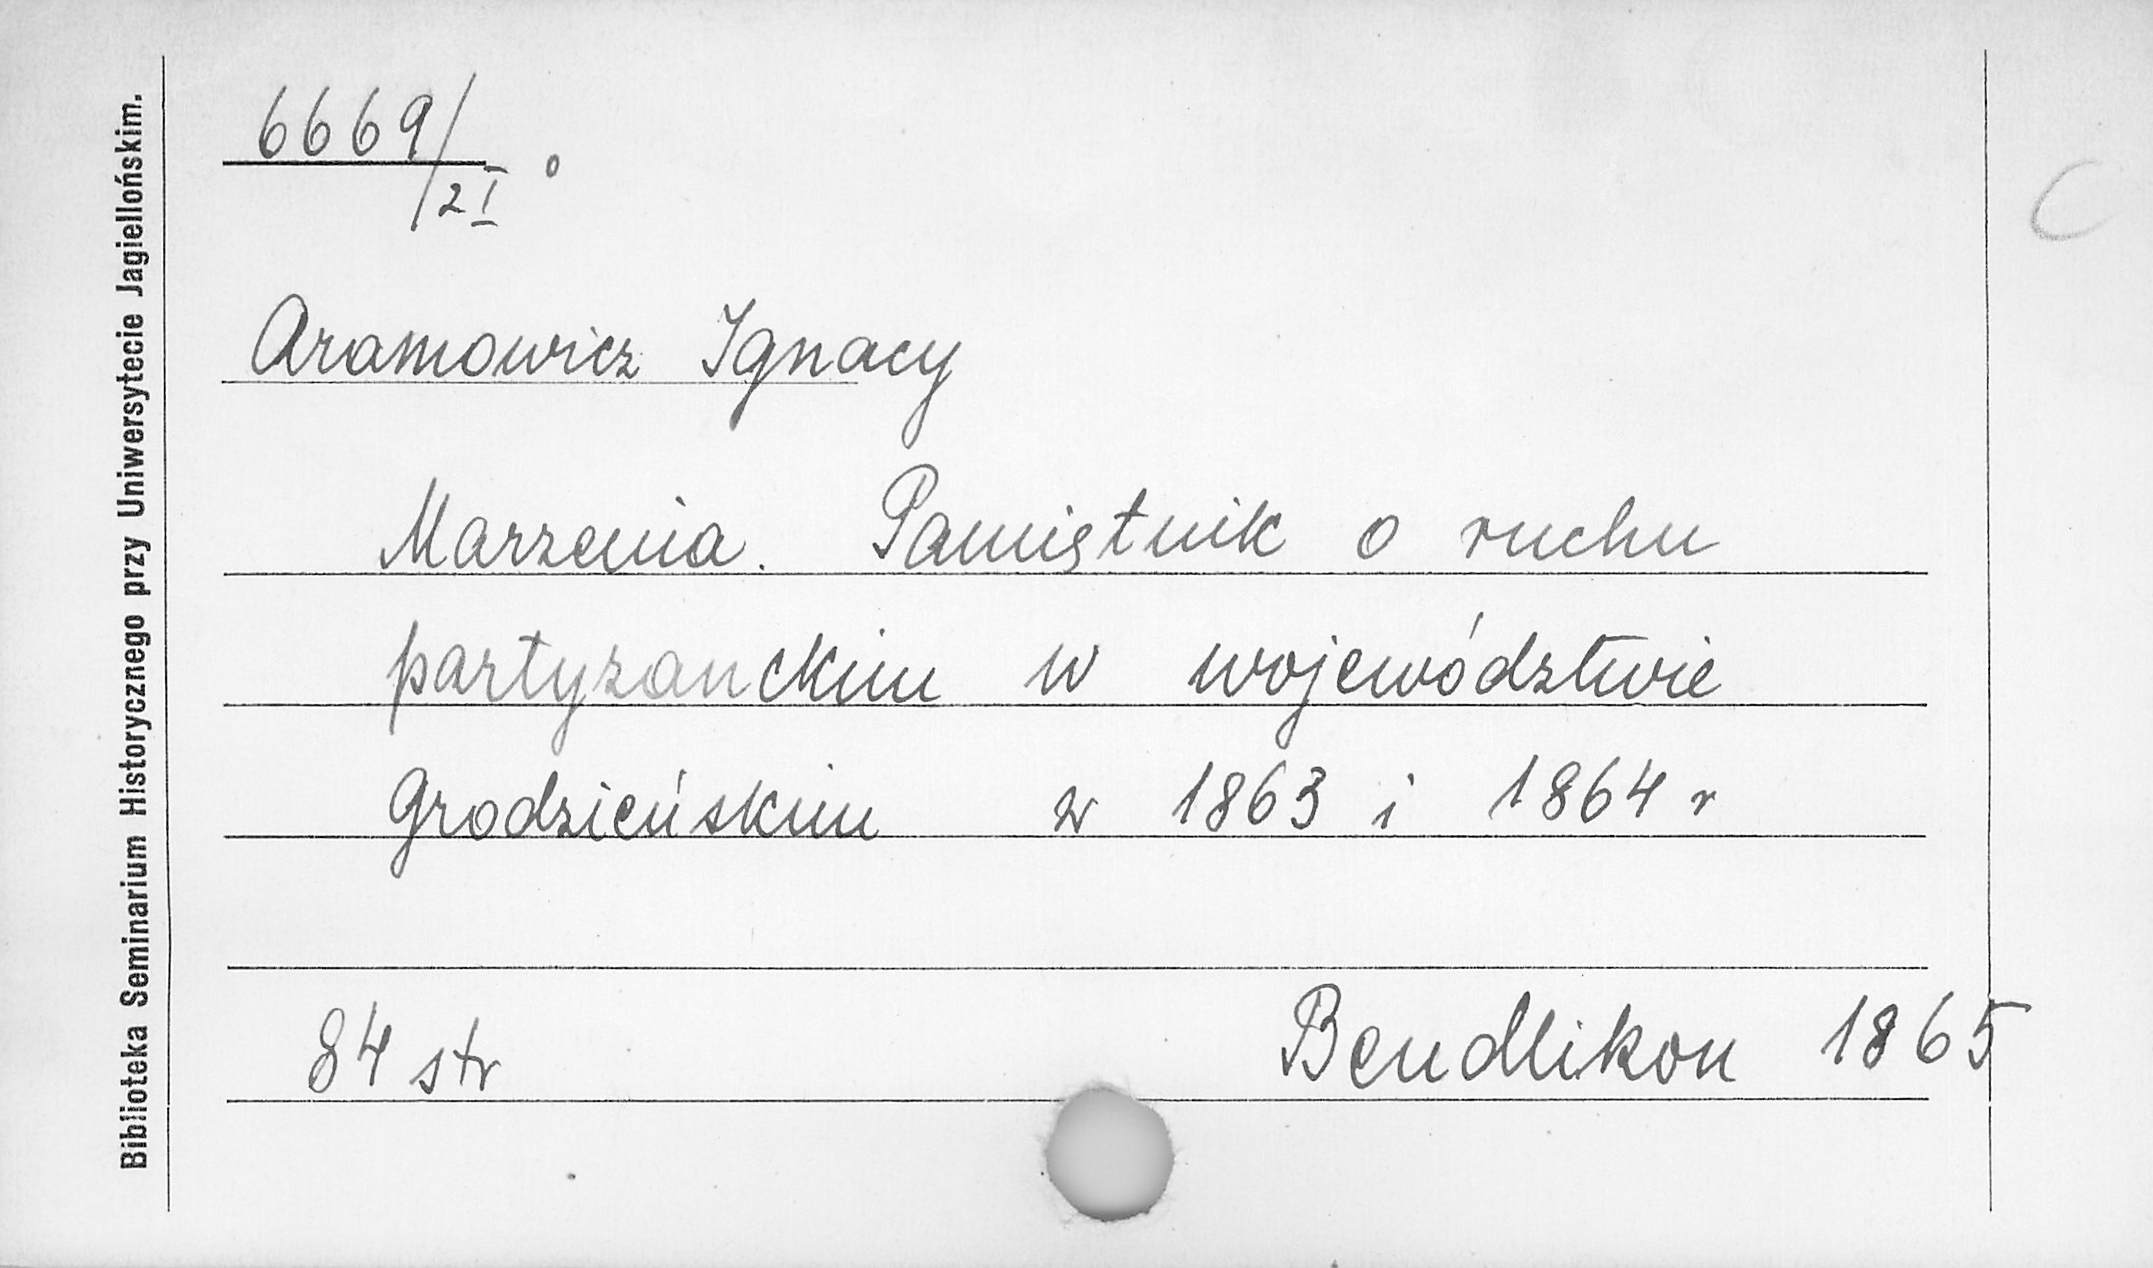 Biblioteka Seminarium Historycznego przy Uniwersytecie Jagiellońskim.
6669/2I °
C
Aramowicz Ignacy
Marzenia. Pamiętnik o ruchu
partyzanckim w województwie
Grodzieńskim w 1863 i 1864 r
84 str Bendlikon 1865